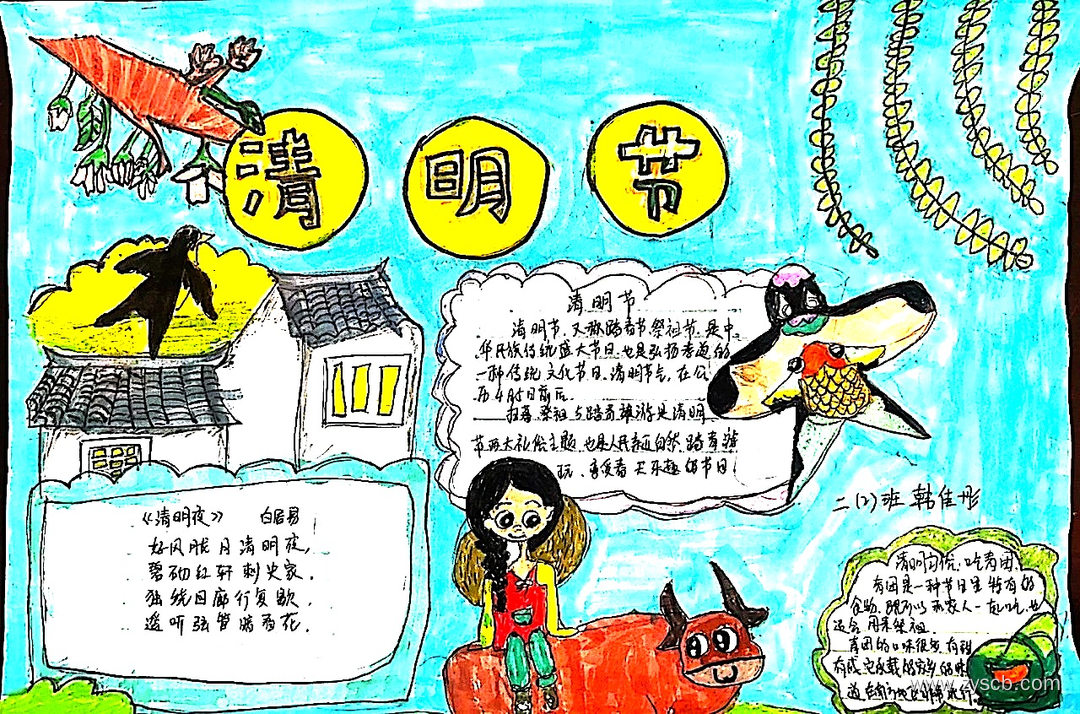 清明节
清明节
清明节，又称踏青节、祭祖节，是中
华民族传统盛大节日，也是弘扬孝道的
一种传统文化节日。清明节气，在公
历4月5日前后。
扫墓祭祖与踏青郊游是清明
节两大礼俗主题，也是人民亲近自然、踏青游
玩、享受春天乐趣的节日
二(2)班 韩佳彤
《清明夜》 白居易
好风胧月清明夜，
碧砌红轩刺史家。
独绕回廊行复歇，
遥听弦管暗看花。
清明习俗，吃青团，
青团是一种节日里特有的
食物，既可以和家人一起吃，也
适合用来祭祖。
青团的口味很多，有甜
有咸，
www.zyscb.com